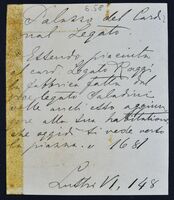 6.50
Palazzo del Cardi=
nal Legato
Essendo piaciuta
al card. Legato
la fabbrica fatta dal
Legato
volle anch'esso aggiun
gere alla sua habitatione
che oggidì si vede verso
la piazza. » 1681
VI, 148